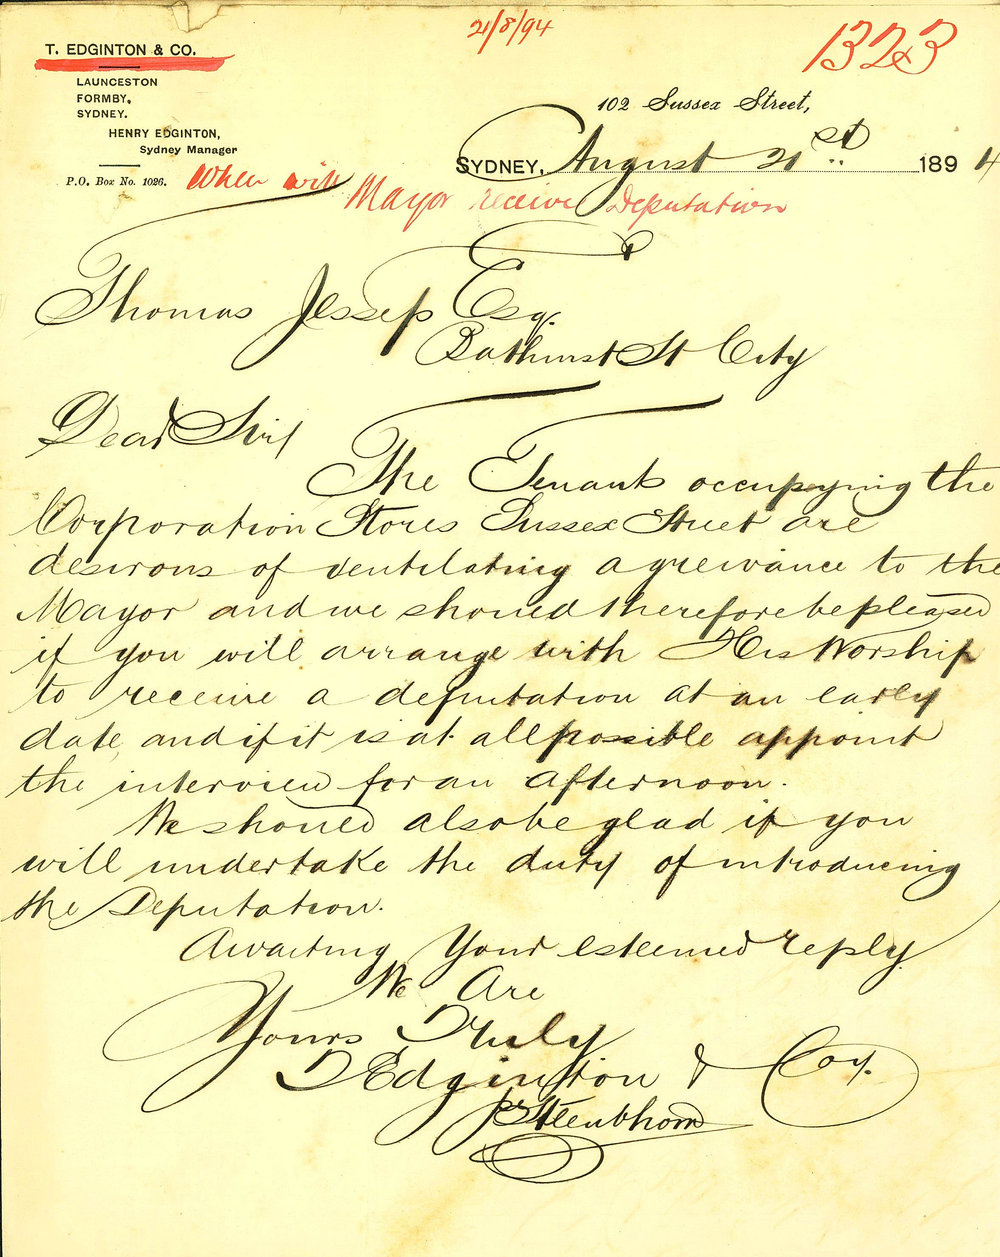 21/8/94
1323
T. EDGINTON & CO.
LAUNCESTON
FORMBY,
SYDNEY.
HENRY EDGINTON,
Sydney Manager
P.O. Box No. 1026.
102 Sussex Street,
SYDNEY, August 21st 1894
When will
Mayor receive Deputation
Thomas Jessep Esq.
Bathurst St City
Dear Sir
The Tenants occupying the
Corporation Stores Sussex Street are
desirous of ventilating a grievance to the
Mayor and we should therefore be pleased
if you will arrange with His Worship
to receive a deputation at an early
date, and if it is at all possible appoint
the interview for an afternoon.
We should also be glad if you
will undertake the duty of introducing
the Deputation.
Awaiting Your esteemed reply
We Are
Yours Truly
T Edginton & Coy.